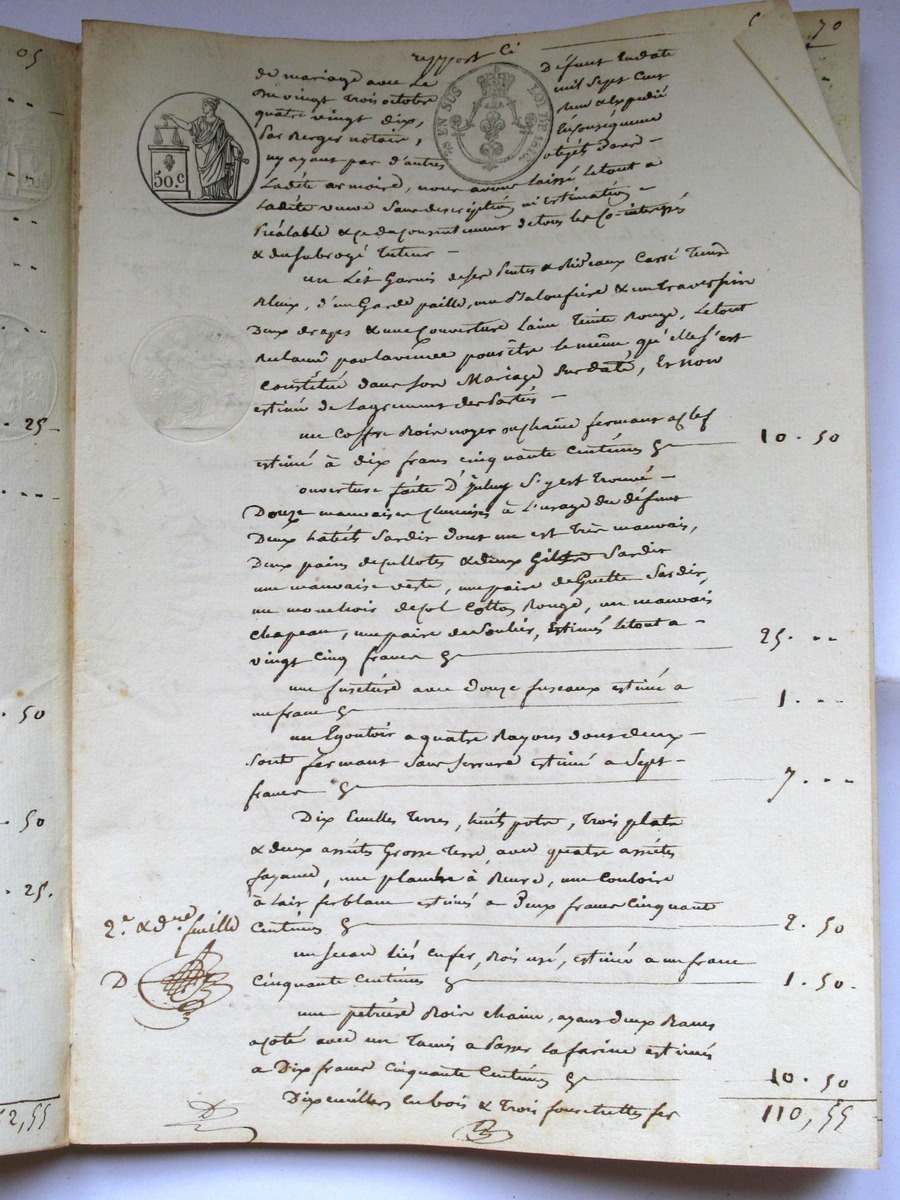 05
70
rapport Ci
de mariage avec Le Défunt Endate
Du vingt trois octobre mil Sept Cent
quatre vingt dix,
par Berger notaire, En conséquence
ny ayant par d'autres objets dans
Ladite armoire, nous avons laissé Letout a
Ladite veuve Sans description ni Estimation
préalable & ce du consentement de tous les Co-interessés
& du subrogé tuteur
EN SUS
LOI DE
50.c
un Lit Garnis de ses & Rideaux Carré
Bleux, d'un Garde paille, un & un traversin
Deux draps & une Couverture Laine Teinte Rouge, Letout
Reclamé par la veuve pour être le même qu'elle s'est
Constitué dans son Mariage Susdaté, Et non
estimé de l'agrement des Parties
un Coffre Bois noyer ou chaine fermant a clef
estimé à dix francs cinquante Centimes 10.50
ouverture faite D'iceluy S'y est Trouvé
Douze mauvaises chemises à L'usage du défunt
Deux habits Sardis dont un est Très mauvais,
Deux paires de cullottes & deux Gillets Sardis
une mauvaise veste, une paire de Guette Sardis,
un mouchoir de col Cotton Rouge, un mauvais
chapeau, une paire de Soulier, Estimés Letout a
vingt cinq francs 25. --
une avec Douze fuseaux estimé a
un franc 1. ---
un Egoutoir a quatre Rayons dont deux
Sont fermant Sans serrure estimé a Sept
francs 7. ---
Dix Terres, huit pots, Trois plats
& deux assiets Grosse Terre, avec quatre assiets
fayance, une à Beure, une Couloire
à Lait ferblanc estimés a Deux francs Cinquante
2.e & D.re feuille
Centimes 2.50
un Seau Liés en fer, Bois usé, estimé a un franc
D
Cinquante Centimes 1.50.
une pétrière Bois chaine, ayant deux
a coté avec un Tamis a Passer la farine estimés
a Dix francs Cinquante Centimes 10.50
Dix en bois & Trois fourchettes fer
110,55
25
50
50
25.
2,55